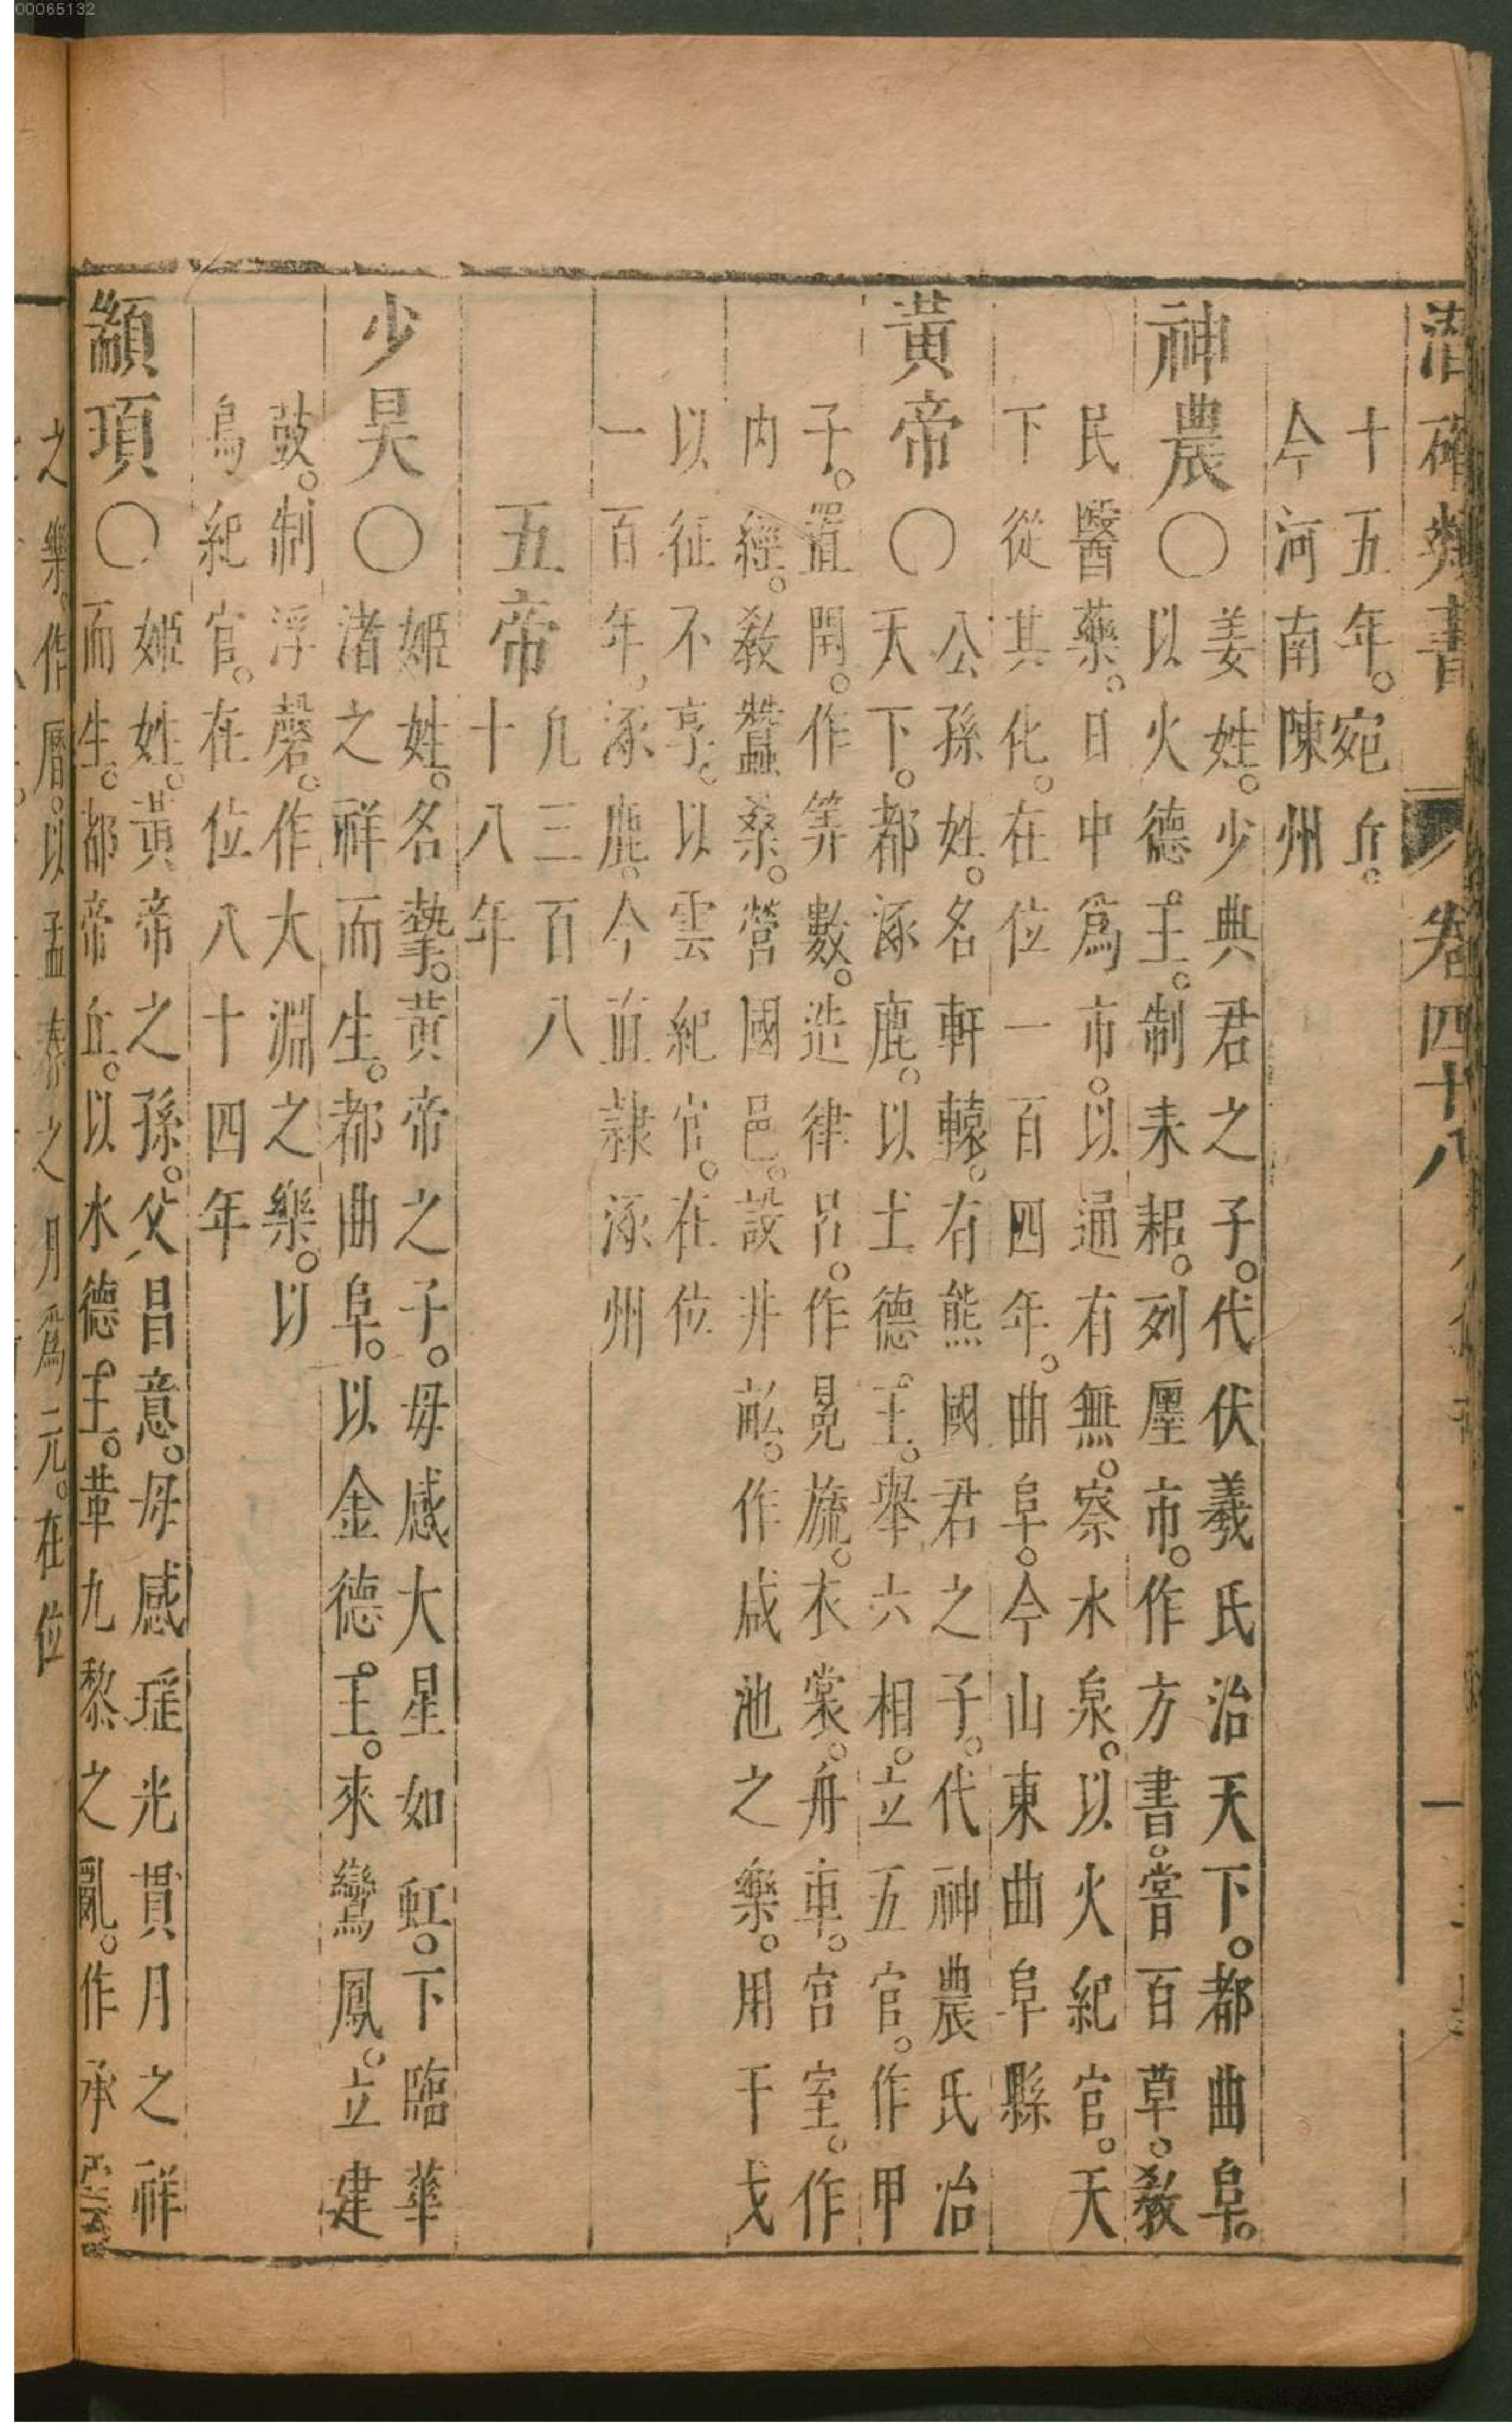 00065132
潛確類書 卷四十八 一
十五年。宛丘。
今河南陳州
神農〇
姜姓。少典君之子。代伏羲氏治天下。都曲阜。
以火德王。制耒耜。列廛市。作方書。嘗百草。敎
民醫藥。日中爲市。以通有無。察水泉。以火紀官。天
下從其化。在位一百四年。曲阜。今山東曲阜縣
黃帝〇
公孫姓。名軒轅。有熊國君之子。代神農氏治
天下。都涿鹿。以土德王。舉六相。立五官。作甲
子。置閏。作筭數。造律呂。作冕旒。衣裳。舟車。宮室。作
内經。敎蠶桑。營國邑。設井畝。作咸池之樂。用干戈
以征不享。以雲紀官。在位
一百年。涿鹿。今直隷涿州
五帝
凢三百八
十八年
少昊〇
姬姓。名摯。黃帝之子。母感大星如虹。下臨華
渚之祥而生。都曲阜。以金德王。來鸞鳳。立建
鼓。制浮磬。作大淵之樂。以
鳥紀官。在位八十四年
顓頊〇
姬姓。黃帝之孫。父昌意。母感瑤光貫月之祥
而生。都帝丘。以水德王。革九黎之亂。作承雲
之樂。作曆。以孟春之月爲元。在位